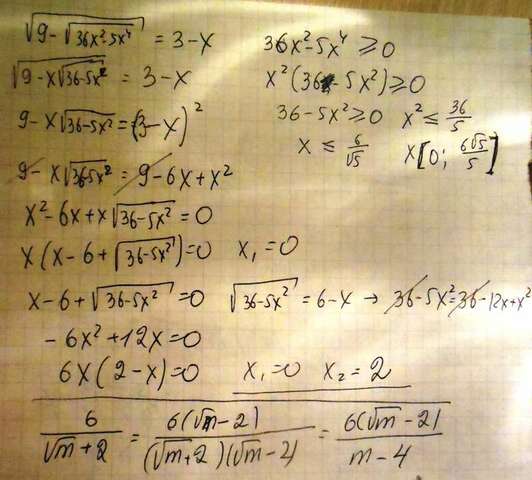 √(9-√(36x²-5x⁴)) = 3-x
36x²-5x⁴ ≥ 0
√(9-x√(36-5x²)) = 3-x
x²(36-5x²) ≥ 0
9-x√(36-5x²) = (3-x)²
36-5x² ≥ 0 x² ≤ 36/5
x ≤ 6/√5 x[0; 6√5/5]
9-x√(36-5x²) = 9-6x+x²
x²-6x+x√(36-5x²) = 0
x(x-6+√(36-5x²)) = 0 x₁=0
x-6+√(36-5x²) = 0 √(36-5x²) = 6-x → 36-5x²=36-12x+x²
-6x²+12x=0
6x(2-x)=0 x₁=0 x₂=2
6/(√m+2) = 6(√m-2)/((√m+2)(√m-2)) = 6(√m-2)/(m-4)